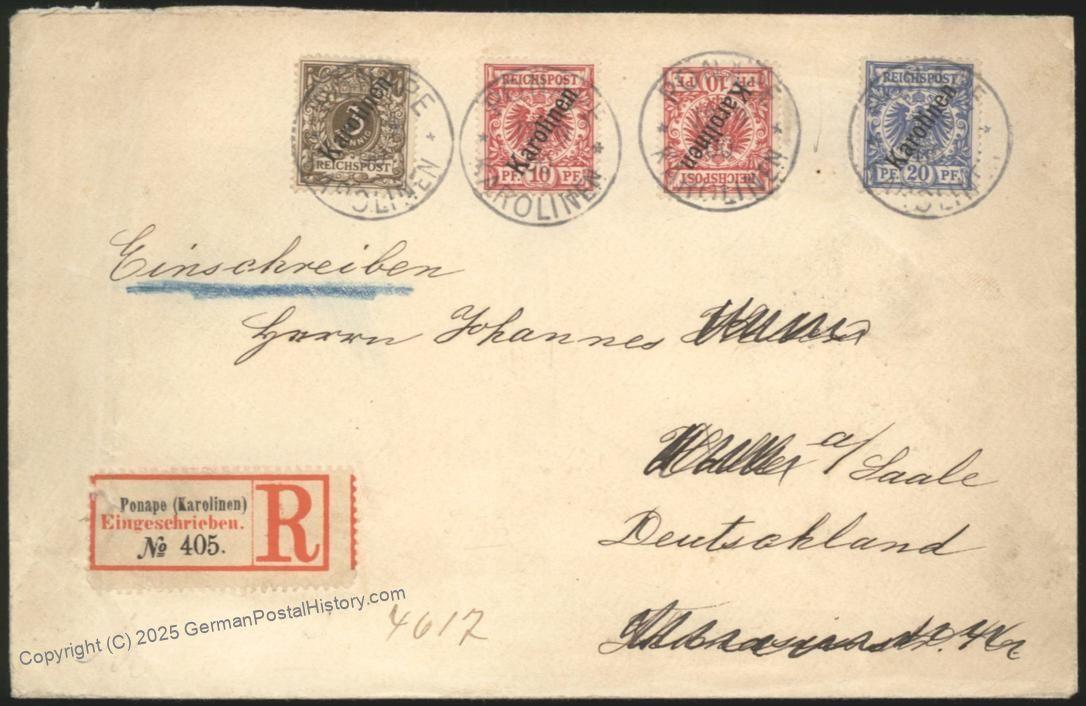 3
PFENNIG
REICHSPOST
Karolinen
REICHSPOST
Karolinen
PF. 10 PF.
KAROLINEN
PF. 10 PF.
Karolinen
REICHSPOST
KAROLINEN
REICHSPOST
Karolinen
PF. 20 PF.
Einschreiben
Herrn Johannes
a/Saale
Deutschland
Ponape (Karolinen)
Eingeschrieben.
№ 405.
R
4617
Copyright (C) 2025 GermanPostalHistory.com